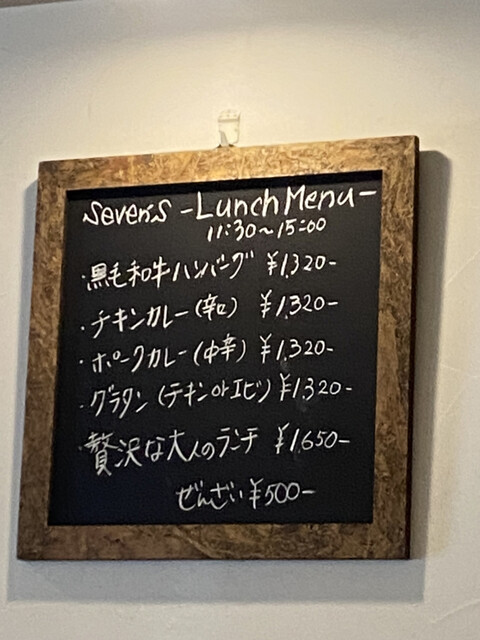 Seven's -Lunch Menu-
11:30～15:00
・黒毛和牛ハンバーグ ¥1,320-
・チキンカレー(辛口) ¥1,320-
・ポークカレー(中辛) ¥1,320-
・グラタン(チキン or エビ) ¥1,320-
・贅沢な大人のランチ ¥1,650-
ぜんざい ¥500-